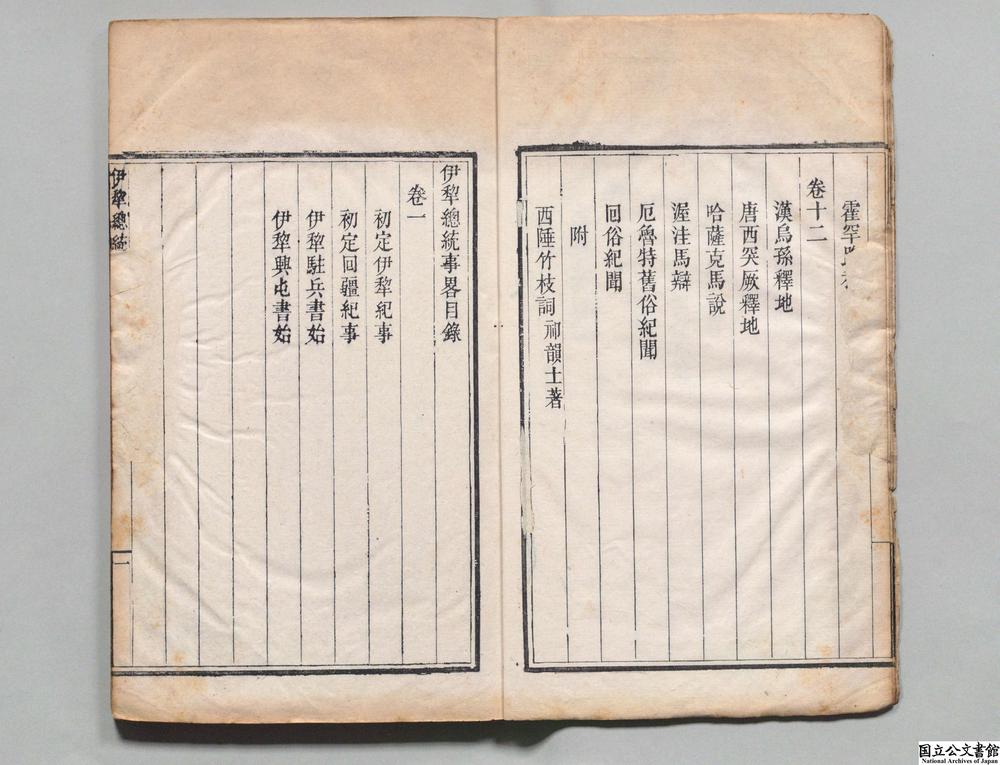 霍罕
卷十二
漢烏孫釋地
唐西突厥釋地
哈薩克馬說
渥洼馬辯
厄魯特舊俗紀聞
回俗紀聞
附
西陲竹枝詞 祁韻士著
伊犂總統事畧目錄
卷一
初定伊犂紀事
初定回疆紀事
伊犂駐兵書始
伊犂興屯書始
伊犂總統
一
国立公文書館
National Archives of Japan